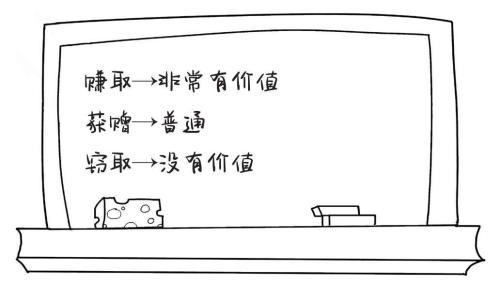 赚取→非常有价值
获赠→普通
窃取→没有价值